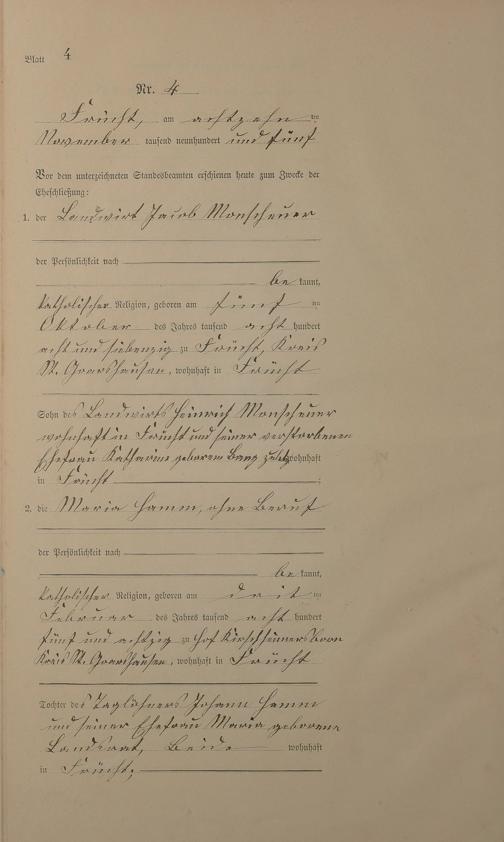 Blatt 4
Nr. 4
Frücht, am achtzehn ten
November tausend neunhundert und fünf
Vor dem unterzeichneten Standesbeamten erschienen heute zum Zwecke der
Eheschließung:
1. der Landwirt Jacob Monscheuer
der Persönlichkeit nach
be kannt,
katholischer Religion, geboren am fünf ten
Oktober des Jahres tausend acht hundert
acht und siebenzig zu Frücht, Kreis
St. Goarshausen, wohnhaft in Frücht
Sohn des Landwirts Heinrich Monscheuer
wohnhaft in Frücht und seiner verstorbenen
Ehefrau Katharine geborenen zuletzt wohnhaft
in Frücht ;
2. die Maria Hamm, ohne Beruf
der Persönlichkeit nach
be kannt,
katholischer Religion, geboren am ten
Februar des Jahres tausend acht hundert
fünf und achtzig zu Hof
Kreis St. Goarshausen, wohnhaft in Frücht
Tochter des Taglöhners Johann Hamm
und seiner Ehefrau Maria geborene
Beide wohnhaft
in Frücht,